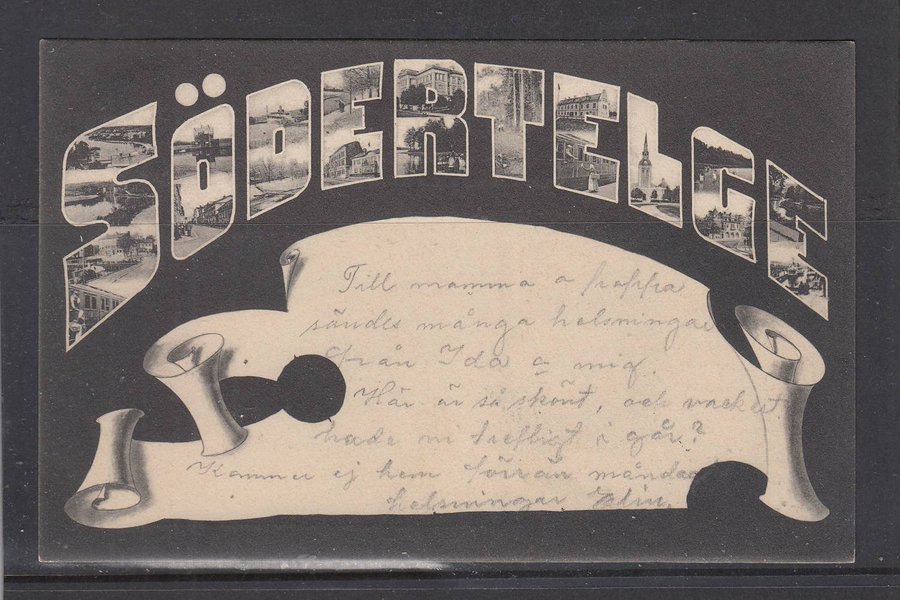 SÖDERTELGE
Till mamma o pappa
sändes många helsningar
från Ida o mig.
Här är så skönt, och vackert
hade ni trefligt i går?
Kommer ej hem förrän måndag
helsningar Elin.